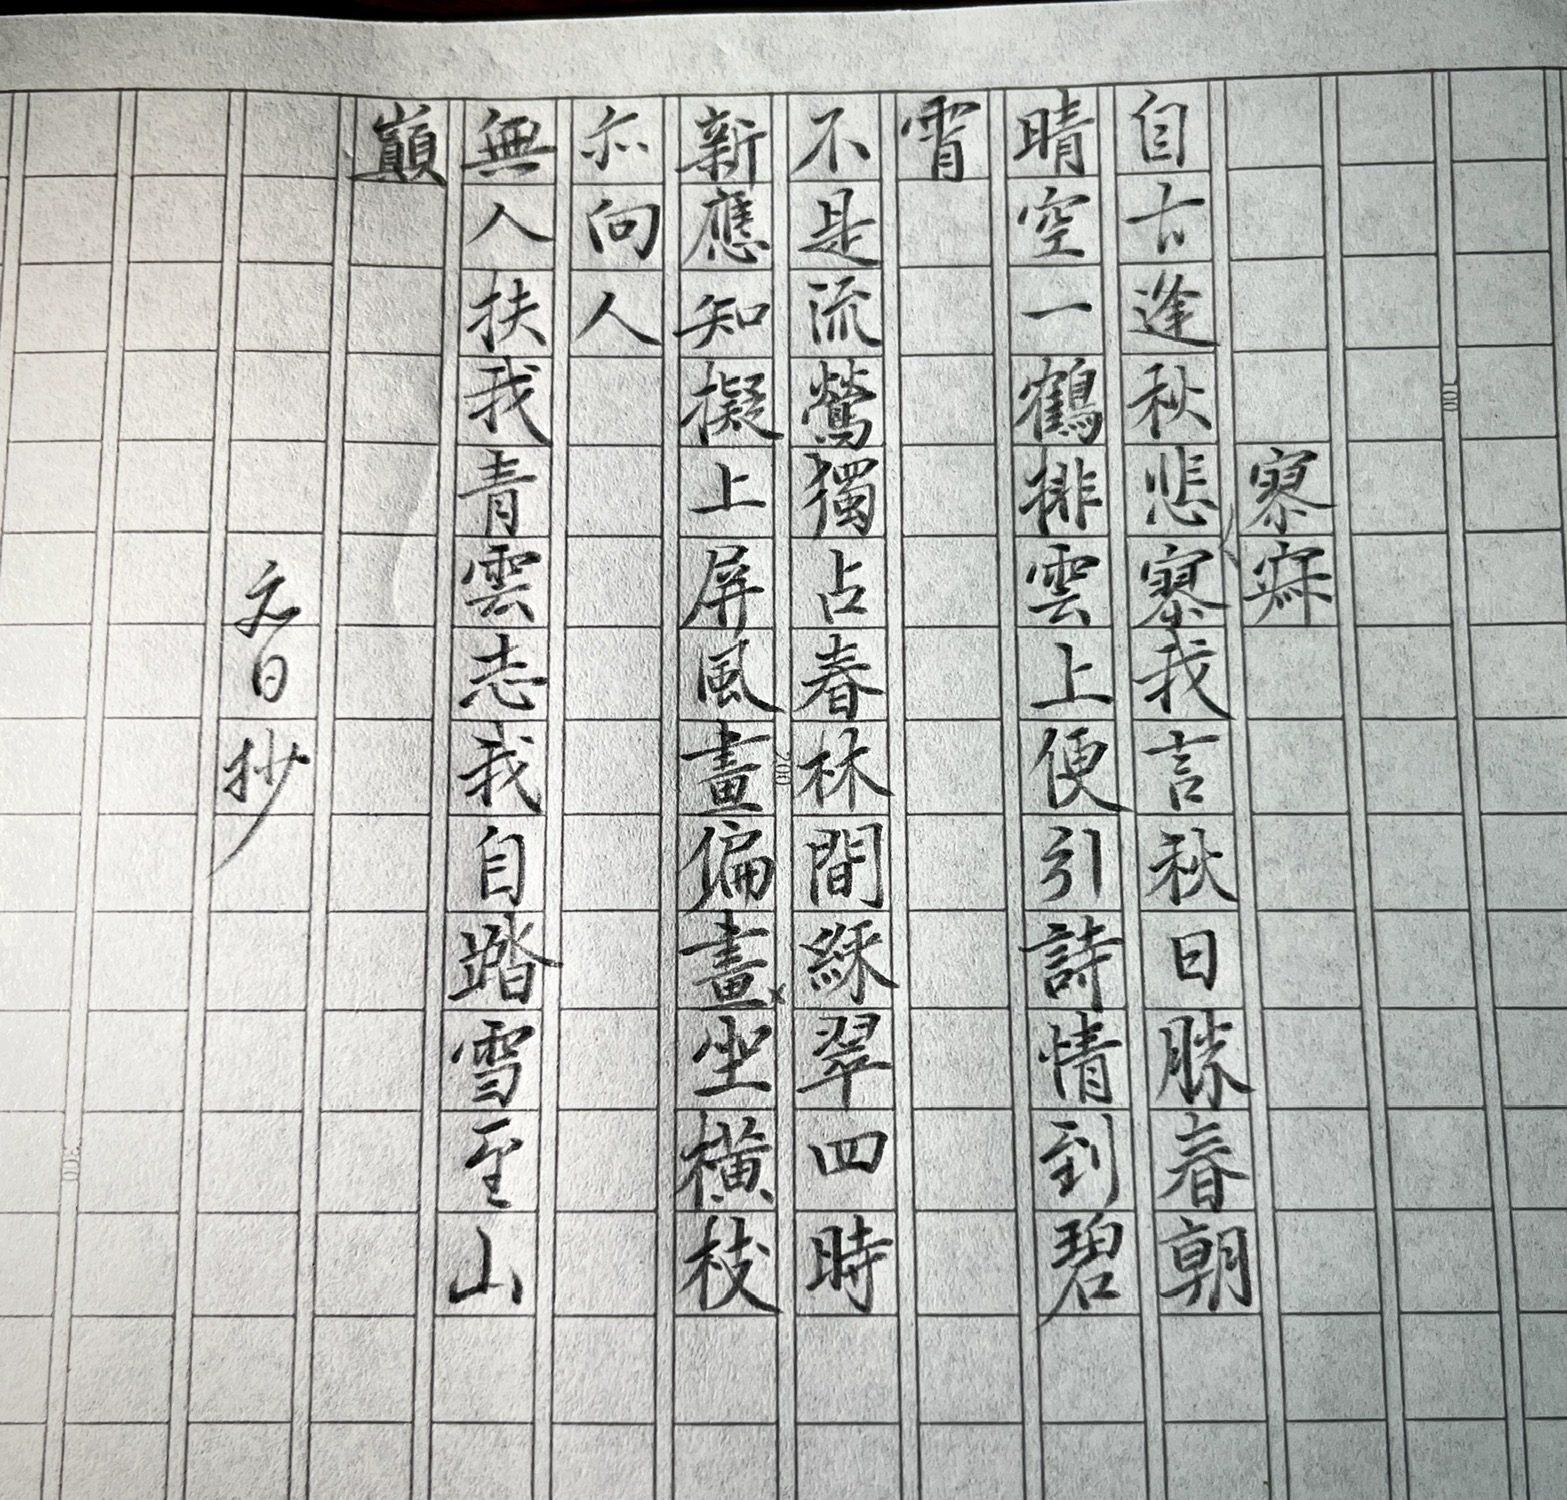 寥寂
自古逢秋悲寥我言秋日勝春朝
晴空一鶴排雲上便引詩情到碧
霄
不是流鶯獨占春林間綵翠四時
新應知擬上屏風畫偏畫坐橫枝
亦向人
無人扶我青雲志我自踏雪至山
巔
元日抄